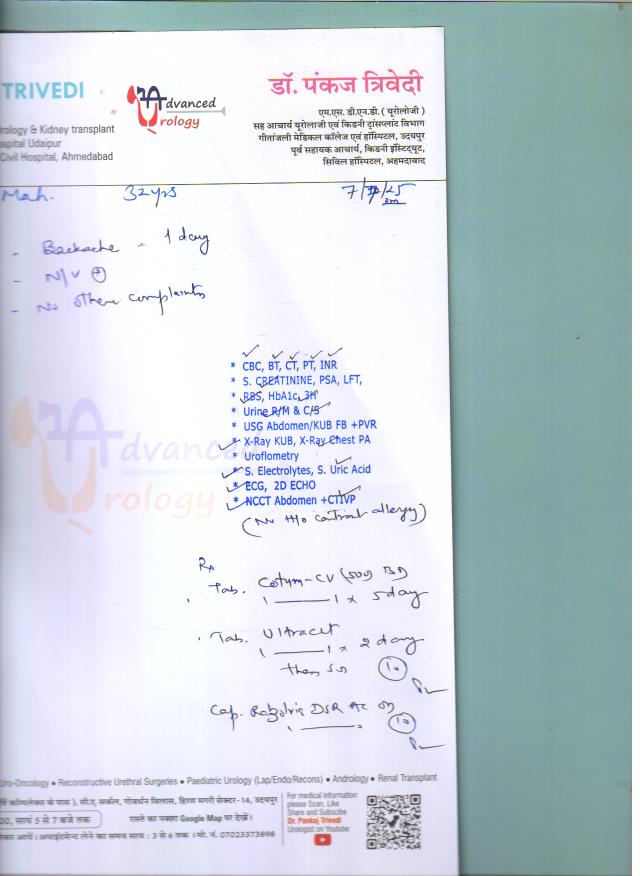 TRIVEDI
Advanced Urology
डॉ. पंकज त्रिवेदी
एम.एस. डी.एन.डी. ( यूरोलोजी )
सह आचार्य यूरोलाजी एवं किडनी ट्रांसप्लांट विभाग
rology & Kidney transplant
गीतांजली मेडिकल कॉलेज एवं हॉस्पिटल, उदयपुर
spital Udaipur
पूर्व सहायक आचार्य, किडनी इंस्टिट्यूट,
Civil Hospital, Ahmedabad
सिविल हॉस्पिटल, अहमदाबाद
Mah. 32 yrs 7/ /25
- Backache - 1 day
- N/V +
- No other complaints
* CBC, BT, CT, PT, INR
* S. CREATININE, PSA, LFT,
* RBS, HbA1c, 3H
* Urine R/M & C/S
* USG Abdomen/KUB FB +PVR
* X-Ray KUB, X-Ray Chest PA
* Uroflometry
* S. Electrolytes, S. Uric Acid
* ECG, 2D ECHO
* NCCT Abdomen +CTIVP
(No H/o contrast allergy)
Advanced
Urology
Rx
Tab. -CV (500) BD
1 — 1 x 5 day
Tab. Ultracet
1 — 1 x 2 day
then 10
Cap. DSR
10
Uro-Oncology • Reconstructive Urethral Surgeries • Paediatric Urology (Lap/Endo/Recons) • Andrology • Renal Transplant
कॉम्पलेक्स के पास ), सी.ए. सर्कल, गोवर्धन विलास, हिरण मगरी सेक्टर-14, उदयपुर
00, सायं 5 से 7 बजे तक रास्ते का नक्शा Google Map पर देखें।
आयें। अपाइंटमेन्ट लेने का समय सायं : 3 से 6 तक । मो. नं. 07023373898
For medical information
please Scan, Like
Share and Subscibe
Dr. Pankaj Trivedi
Urologist on Youtube